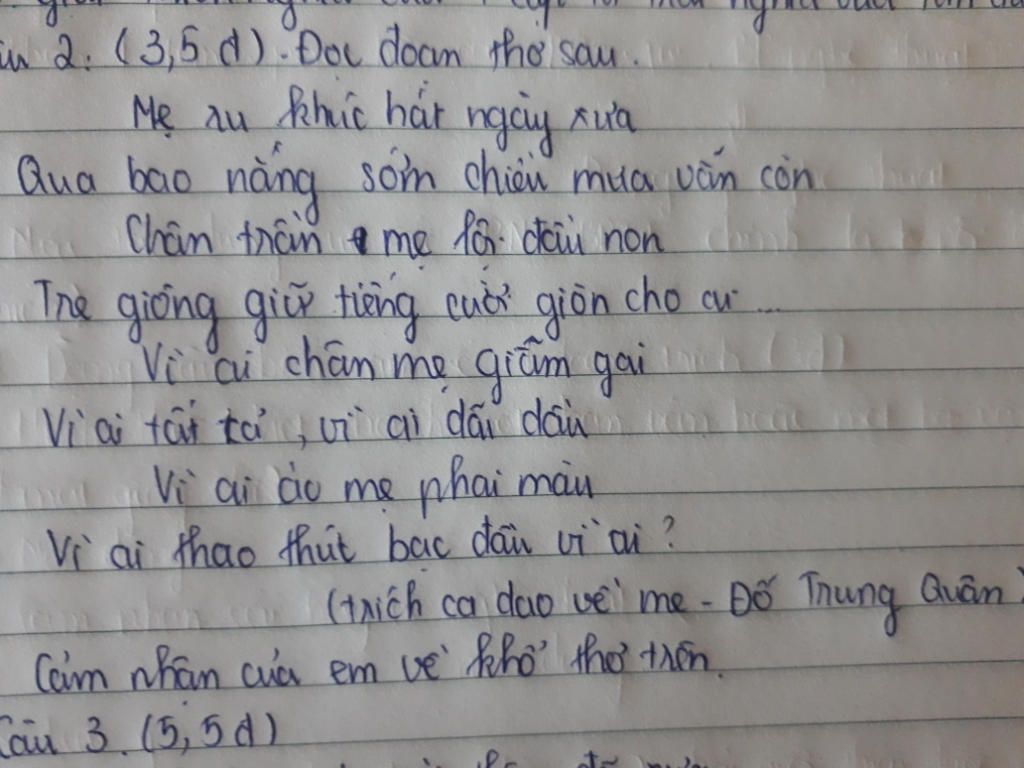 2. (3,5 đ). Đọc đoạn thơ sau.
Mẹ ru khúc hát ngày xưa
Qua bao nắng sớm chiều mưa vẫn còn
Chân trần mẹ lội đầu non
Tre giống giữ tiếng cười giòn cho ai...
Vì ai chân mẹ giẫm gai
Vì ai tất tả, vì ai dãi dầu
Vì ai áo mẹ phai màu
Vì ai thao thức bạc đầu vì ai?
(trích ca dao về mẹ - Đỗ Trung Quân)
Cảm nhận của em về khổ thơ trên.
Câu 3. (5,5 đ)